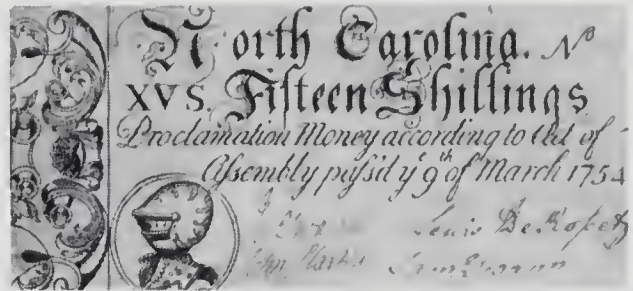 North Carolina. No
XVS. Fifteen Shillings
Proclamation Money according to Act of
Assembly pass'd ye 9th of March 1754
Lewis De Rosset
John